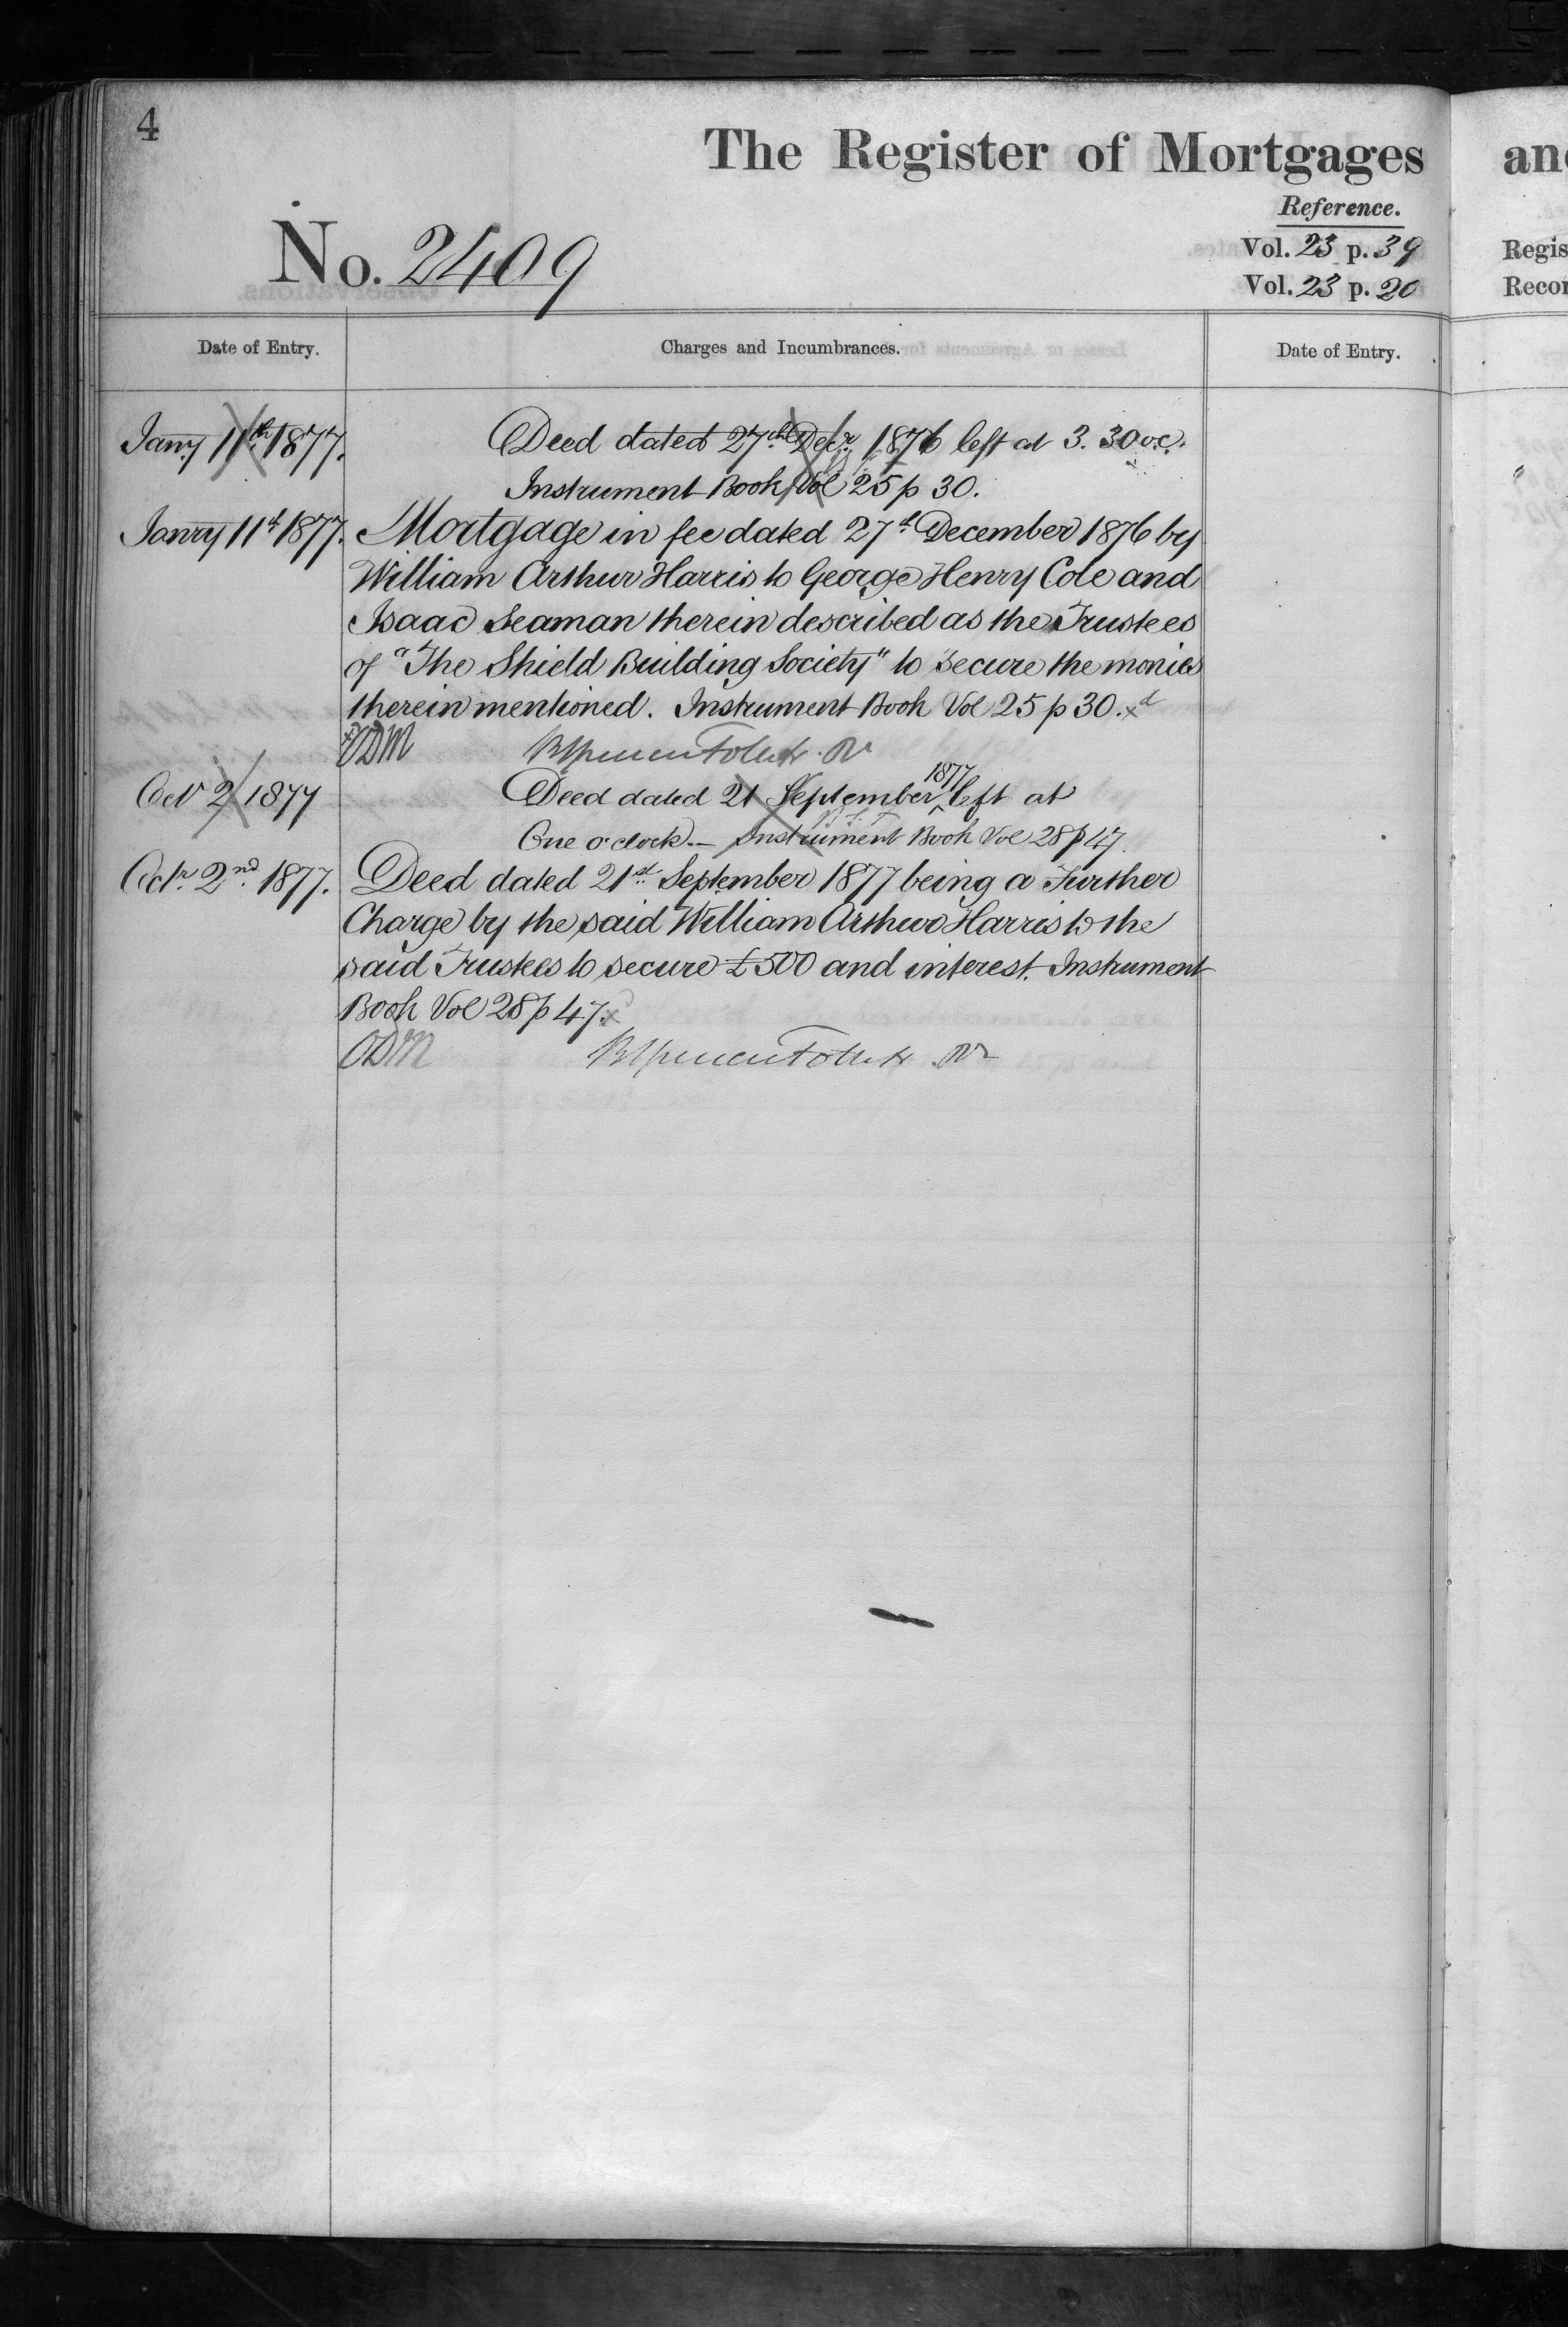 4
The Register of Mortgages
Reference.
No. 2409
Vol. 23 p. 39
Vol. 23 p. 20
Regis
Recor
Date of Entry. Charges and Incumbrances. Date of Entry.
Jany 11th 1877. Deed dated 27th Decr. 1876 left at 3. 30 o.c.
Instrument Book Vol 25 p 30.
Janry 11th 1877. Mortgage in fee dated 27th December 1876 by
William Arthur Harris to George Henry Cole and
Isaac Seaman therein described as the Trustees
of "The Shield Building Society" to secure the monies
therein mentioned. Instrument Book Vol 25 p 30.
ODM
Oct 2 1877 Deed dated 21 September 1877 left at
One o'clock.— Instrument Book Vol 28 p 47.
Octr. 2nd. 1877. Deed dated 21st September 1877 being a Further
Charge by the said William Arthur Harris to the
said Trustees to secure £500 and interest. Instrument
Book Vol 28 p 47.
ODM